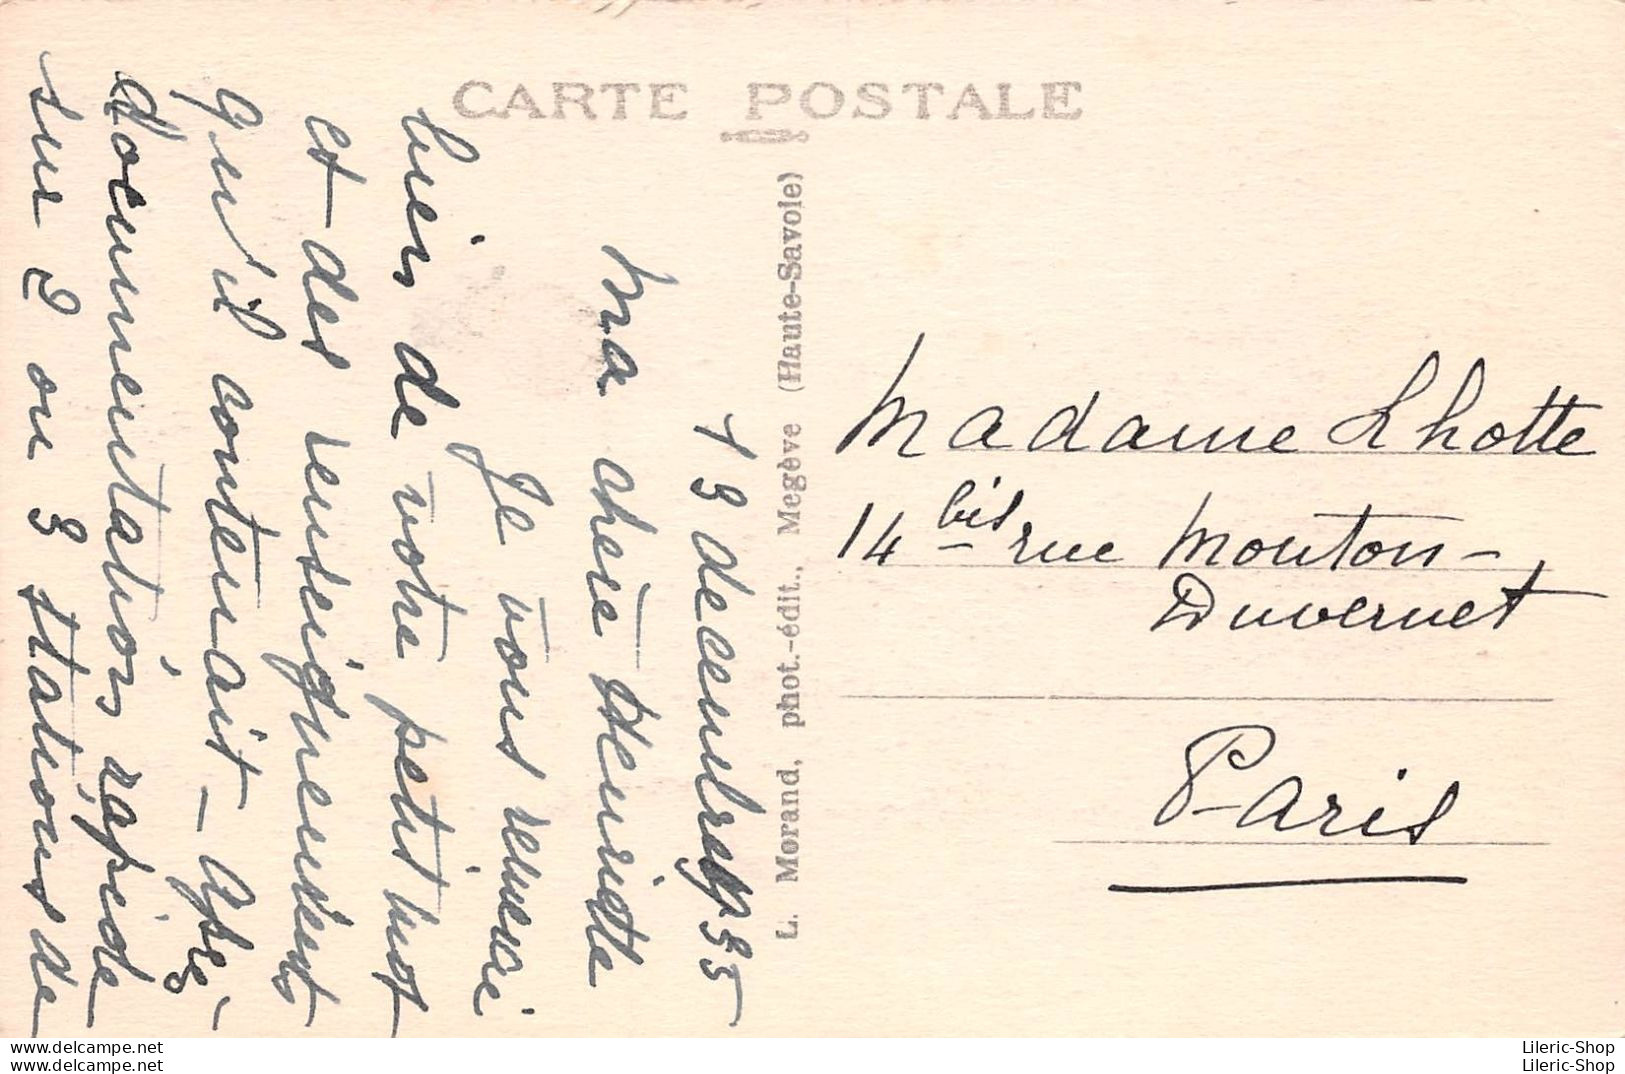 CARTE POSTALE
13 decembre 1935
Ma chère Henriette
Je vous remercie
bien de votre petit mot
et des renseignements
qu'il contenait - Après
documentation rapide
sur 2 ou 3 stations de
L. Morand, phot.-édit., Megève (Haute-Savoie)
Madame Lhotte
14 bis rue Mouton-
Duvernet
Paris
www.delcampe.net
www.delcampe.net
Lileric-Shop
Lileric-Shop